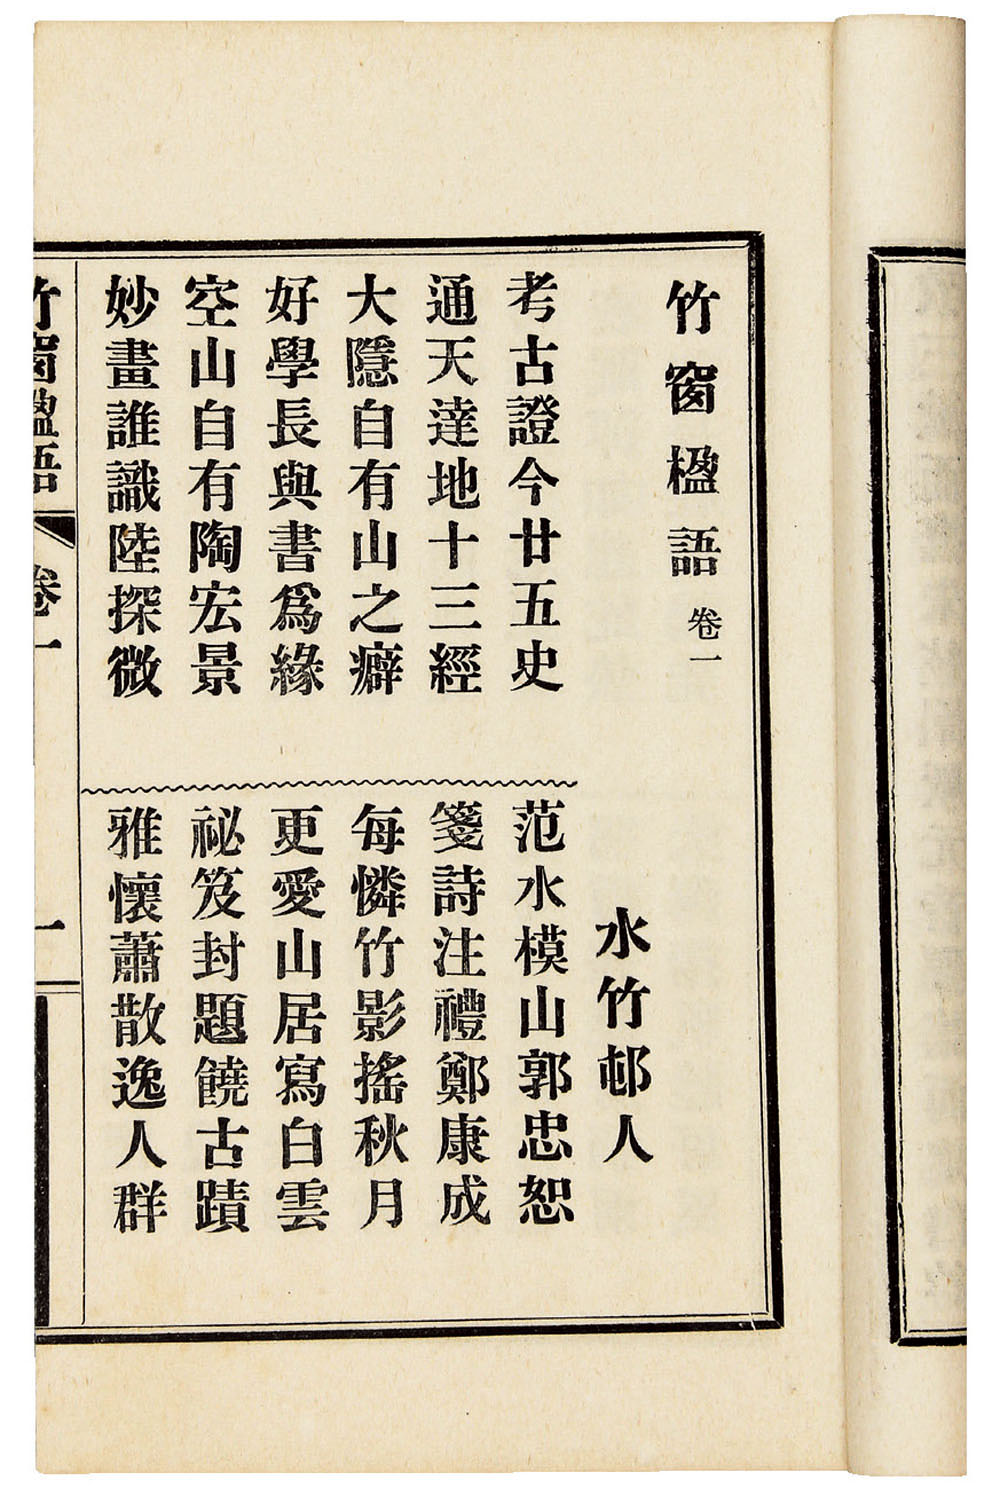 竹窗楹語 卷一
水竹邨人
考古證今廿五史
通天達地十三經
大隱自有山之癖
好學長與書爲緣
空山自有陶宏景
妙畫誰識陸探微
范水模山郭忠恕
箋詩注禮鄭康成
每憐竹影搖秋月
更愛山居寫白雲
祕笈封題饒古蹟
雅懷蕭散逸人群
竹窗楹語 卷一 一